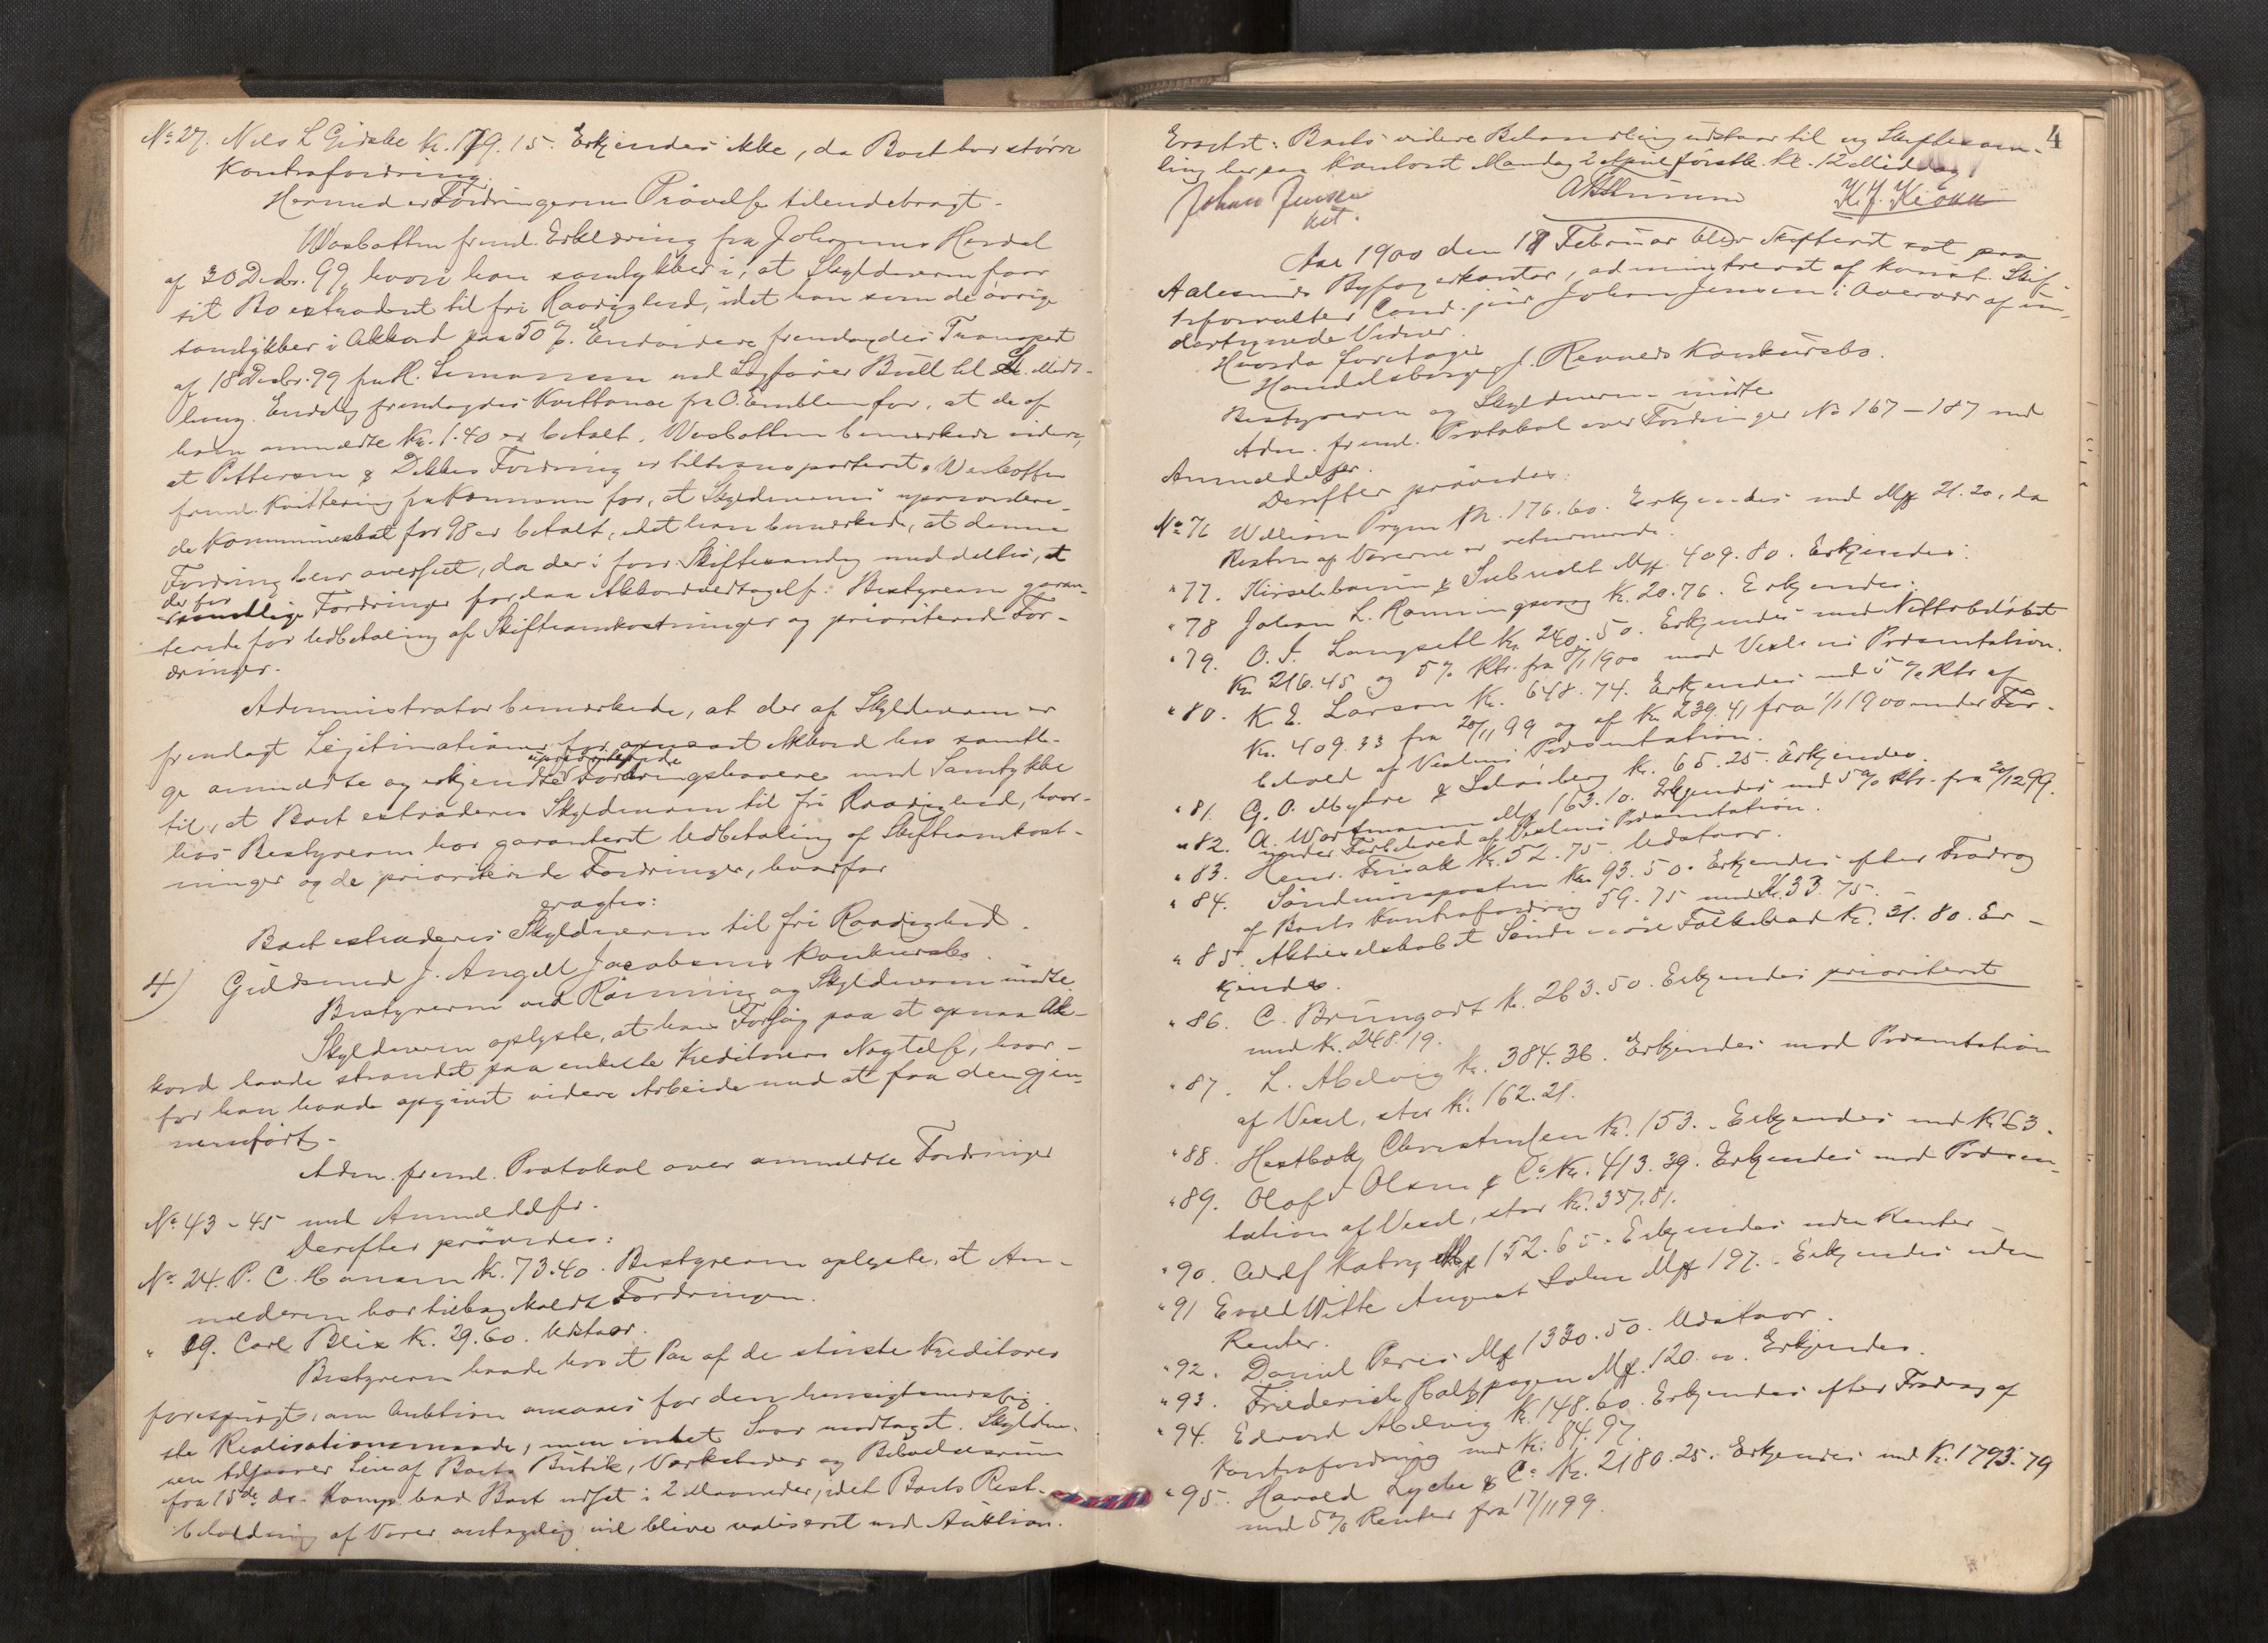 No 27. Nils L Gidske Kr. 179.15. Erkjendes ikke, da Boet har større
Kontrafordring.
Hermed er Fordringernes Prøvelse tilendebragt.
Wasbotten freml. Erklæring fra Johannes Hesdal
af 30 Decbr. 99, hvori han samtykker i, at Skyldneren faar
sit Bo extraderet til fri Raadighed, idet han som de øvrige
samtykker i Akkord paa 50%. Endvidere fremlagdes Transport
af 18 Decbr. 99 fra H. Simonsen ved Sagfører Bull til
Endelig fremlagdes Kvittance fra O. Emblem for, at de af
ham anmeldte Kr. 1.40 er betalt. Wasbotten bemærkede videre,
at Pettersen & Dekkes Fordring er tiltransporteret. Wasbotten
freml. Kvittering fra Kæmneren for, at Skyldnerens uprioritere-
de Kommuneskat for 98 er betalt, idet han bemærkede, at denne
Fordring blev overseet, da der i forr. Skiftesamlg meddeltes, at
der for
samtlige Fordringer forelaa Akkordvedtagelse. Bestyreren garan-
terede for Udbetaling af Skifteomkostninger og prioriterede For-
dringer.
Administrator bemærkede, at der af Skyldneren er
fremlagt Legitimationer for opnaaet Akkord hos samtli-
uprioriterede
ge anmeldte og erkjendte Fordringshavere med Samtykke
til, at Boet extraderes Skyldneren til fri Raadighed, hvor-
hos Bestyreren har garanteret Udbetaling af Skifteomkost-
ninger og de prioriterede Fordringer, hvorfor
eragtes:
Boet extraderes Skyldneren til fri Raadighed.
4) Guldsmed J. Angell Jacobsens Konkursbo.
Bestyreren ved Rønning og Skyldneren mødte.
Skyldneren oplyste, at hans Forsøg paa at opnaa Ak-
kord havde strandet paa enkelte Kreditorers Nægtelse, hvor-
for han havde opgivet videre Arbeide med at faa den gjen-
nemført.
Adm. freml. Protokol over anmeldte Fordringer
No. 43 - 45 med Anmeldelser.
Derefter prøvedes:
No. 24. P. C. Hansen Kr. 73.40. Bestyreren oplyste, at An-
melderen har tilbagekaldt Fordringen.
" 29. Carl Blix Kr. 29.60. Udstaar.
Bestyreren havde hos et Par af de største Kreditorer
forespurgt, om Auktion ansaaes for den hensigtsmæssig-
ste Realisationsmaade, men intet Svar modtaget. Skyldne-
ren tilsvarer Leie af Boets Butik, Værksteder og Beboelsesrum
fra 15de ds. Komp. bad Boet udsat i 2 Maaneder, idet Boets Rest-
beholdning af Varer antagelig vil blive realiseret ved Auktion.
4
Eragtet: Boets videre Behandling udstaar til ny Skiftesam-
ling her paa Kontoret Mandag 2 April førstk. Kl. 12 Middag
Johan Jensen
kst.
K. J. Kiønn
Aar 1900 den 18 Februar blev Skifteret sat paa
Aalesunds Byfogedkontor, administreret af konst. Skif-
teforvalter Cand. jur. Johan Jensen i Overvær af un-
dertegnede Vidner.
Hvorda foretoges
Handelsborger J. Rennes Konkursbo.
Bestyreren og Skyldneren mødte
Adm. freml. Protokol over Fordringer No 167 - 187 med
Anmeldelser.
Derefter prøvedes:
No 76 William Prym Kr. 176.60. Erkjendes med Mk 21.20, da
Resten af Varerne er returnerede.
" 77. Hirschbaum & Mk. 409.80. Erkjendes.
" 78 Johan L. Rønningsvag Kr. 20.76. Erkjendes.
" 79. O. I. Langseth Kr. 240.50. Erkjendes med Nettobeløbet
Kr. 216.45 og 5% Rtr. fra 8/1 1900 mod Vexlens Præsentation.
" 80. K. E. Larsen Kr. 648.74. Erkjendes med 5% Rtr af
Kr. 409.33 fra 20/11 99 og af Kr. 239.41 fra 1/1 1900 under For-
behold af Vexlens Præsentation.
" 81. G. O. Myhre & Schieberg Kr. 65.25. Erkjendes.
" 82. A. Wortmann Mk 163.10. Erkjendes med 5% Rtr. fra 20/12 99.
under Forbehold af Vexlens Præsentation.
" 83. Henr. Finsalt Kr. 52.75. Udstaar.
" 84. Søndmørsposten Kr. 93.50. Erkjendes efter Fradrag
af Boets Kontrafordring 59.75 med Kr. 33.75.
" 85. Aktieselskabet Søndmøre Folkeblad Kr. 31.80. Er-
kjendes.
" 86. C. Brungodt Kr. 263.50. Erkjendes prioriteret
med Kr. 248.19.
" 87. L. Abelvig Kr. 384.36. Erkjendes mod Præsentation
af Vexel, stor Kr. 162.21.
" 88. Hestbek Christensen Kr. 153.. Erkjendes med Kr 63.
" 89. Olaf T Olsen & Co Kr. 413.39. Erkjendes mod Præsen-
tation af Vexel, stor Kr. 337.81.
" 90. Adolf Katry Mk 152.65. Erkjendes uden Renter
" 91 Ewald Witte August Sohn Mk 197.. Erkjendes uden
Renter.
" 92. Daniel Peres Mk 1330.50. Udstaar.
" 93. Friederich Halfpagen Mk. 120.00. Erkjendes.
" 94. Edvard Abelvig Kr. 148.60. Erkjendes efter Fradrag af
Kontrafordring med Kr. 84.97.
" 95. Harald Lyche & Co Kr. 2180.25. Erkjendes med Kr. 1793.79
med 5% Renter fra 17/11 99.